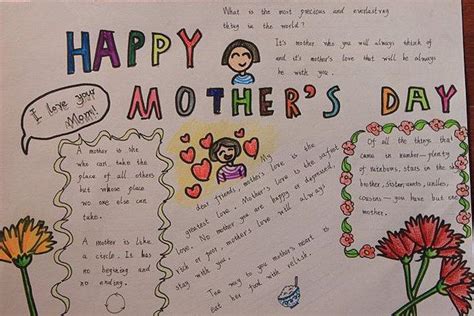 What is the most precious and everlasting
thing in the world?
It's mother who you will always think of
and it's mother's love that will be always
be with you.
HAPPY
MOTHER'S DAY
I love you
Mom!
A mother is she
who can take the
place of all others
but whose place
no one else can
take.
A mother is like
a circle. It has
no begining and
no ending.
dear friends, mother's love is the
greatest love. Mother's love is the safest
love. No matter you are happy or depressed,
rich or poor, mother's love will always
stay with you.
The way to you mother's heart is
eat her food with relish.
Of all the things that
came in number—plenty
of rainbows, stars in the sky
brother, sister, aunts, unlles,
cousins — you have but one
mother.